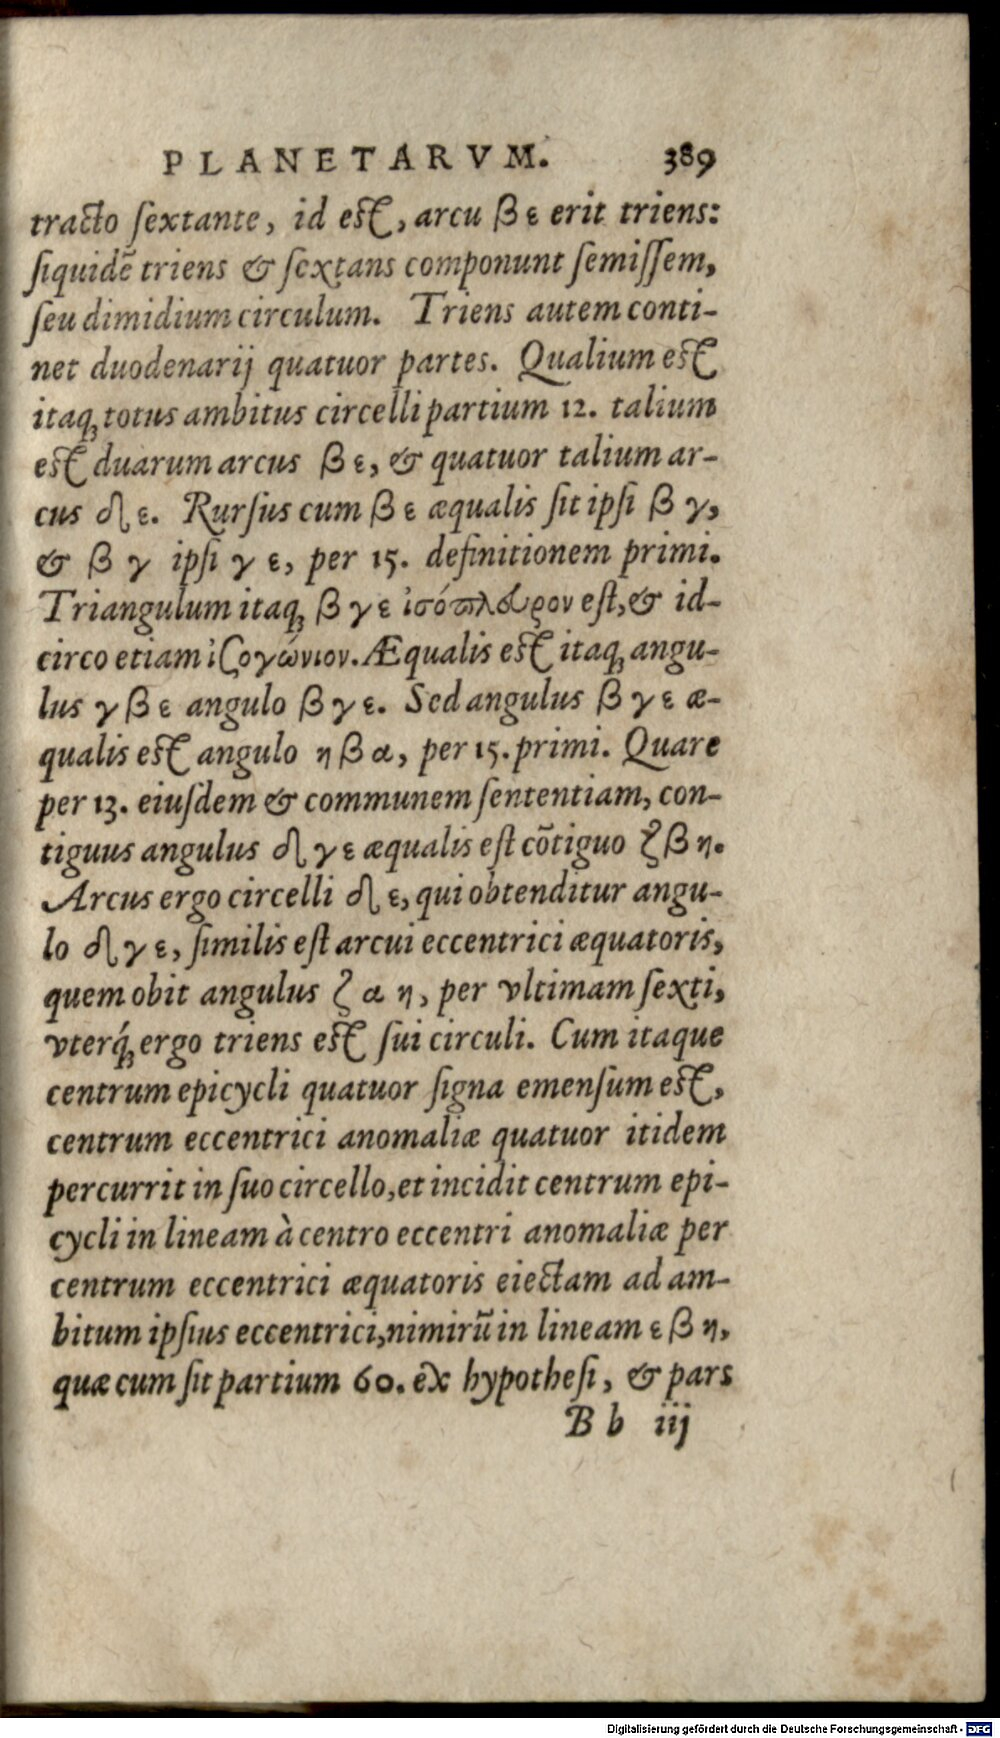 PLANETARVM. 389
tracto ſextante, id eſt, arcu β ε erit triens:
ſiquidē triens & ſextans componunt ſemiſſem,
ſeu dimidium circulum. Triens autem conti-
net duodenarij quatuor partes. Qualium eſt
itaq; totus ambitus circelli partium 12. talium
eſt duarum arcus β ε, & quatuor talium ar-
cus δ ε. Rurſus cum β ε æqualis ſit ipſi β γ,
& β γ ipſi γ ε, per 15. definitionem primi.
Triangulum itaq; β γ ε ἰσόπλευρον eſt, & id-
circo etiam ἰσογώνιον. Æqualis eſt itaq; angu-
lus γ β ε angulo β γ ε. Sed angulus β γ ε æ-
qualis eſt angulo η β α, per 15. primi. Quare
per 13. eiuſdem & communem ſententiam, con-
tiguus angulus δ γ ε æqualis eſt cōtiguo ζ β η.
Arcus ergo circelli δ ε, qui obtenditur angu-
lo δ γ ε, ſimilis eſt arcui eccentrici æquatoris,
quem obit angulus ζ α η, per vltimam ſexti,
vterq́; ergo triens eſt ſui circuli. Cum itaque
centrum epicycli quatuor ſigna emenſum eſt,
centrum eccentrici anomaliæ quatuor itidem
percurrit in ſuo circello, et incidit centrum epi-
cycli in lineam à centro eccentri anomaliæ per
centrum eccentrici æquatoris eiectam ad am-
bitum ipſius eccentrici, nimirū in lineam ε β η,
quæ cum ſit partium 60. ex hypotheſi, & pars
B b iij
Digitalisierung gefördert durch die Deutsche Forschungsgemeinschaft - DFG